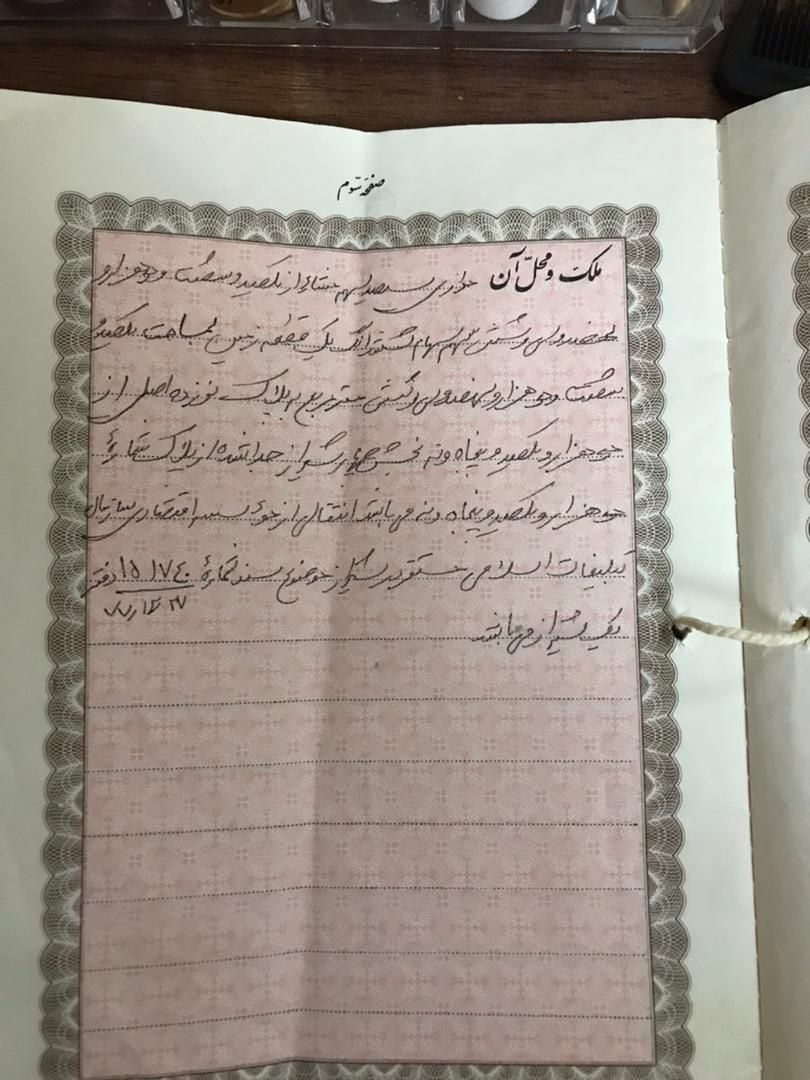 صفحه سوم
ملک و محل آن موازی سیصد سهم مشاع از یکصد و شصت و دو هزار و
نهصد و سی و شش سهم سهام ششدانگ یک قطعه زمین بمساحت یکصد و
شصت و دو هزار و نهصد و سی و شش متر مربع به پلاک نوزده اصلی از
دو هزار و یکصد و پنجاه و نه بخش چهار شیراز جدا شده از پلاک شماره
دو هزار و یکصد و پنجاه و نه می باشد انتقالی از موسسه اقتصادی سازمان
تبلیغات اسلامی مستقر در شیراز موضوع سند شماره دفتر
یک شیراز می باشد